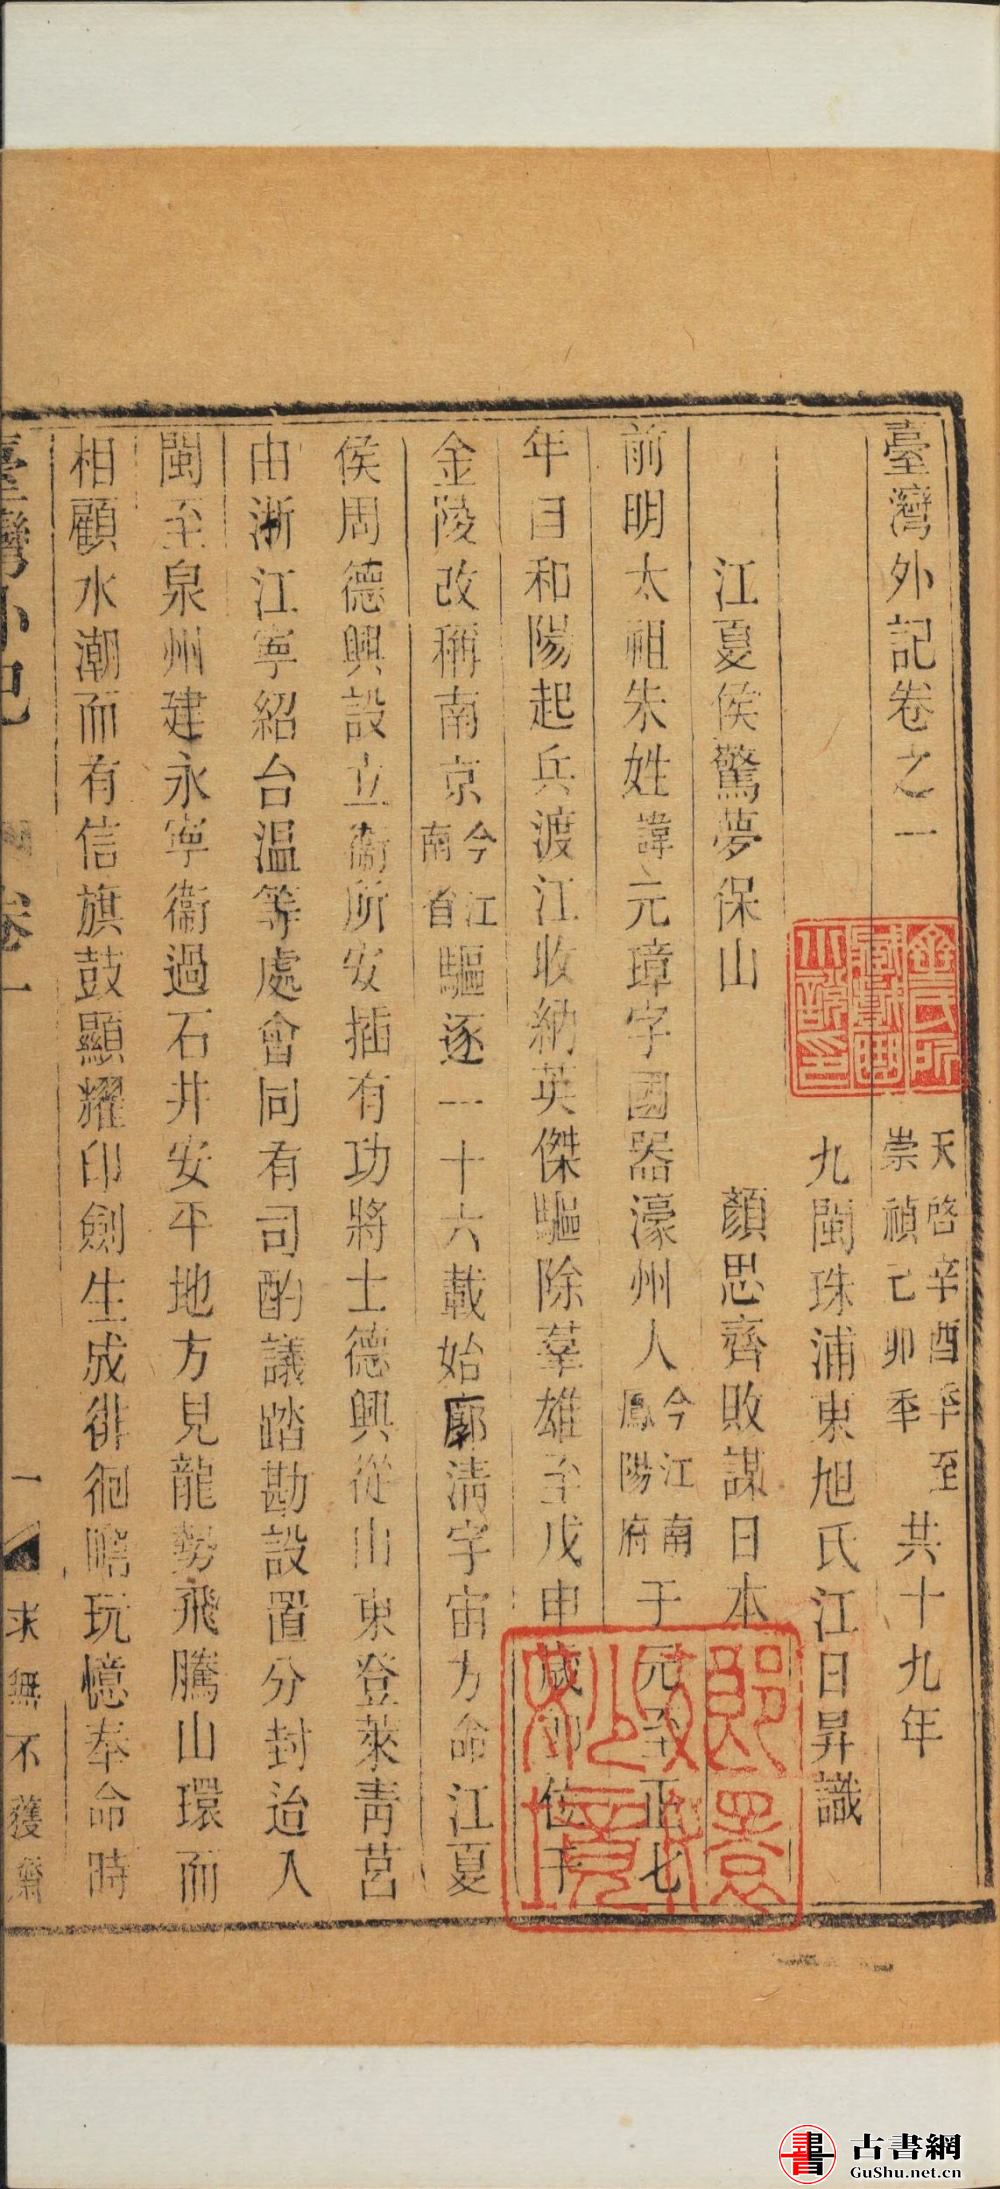 臺灣外記卷之一 天啓辛酉年至崇禎己卯年 共十九年
九閩珠浦東旭氏江日昇識
江夏侯驚夢保山 顏思齊敗謀日本
前明太祖朱姓諱元璋字國器濠州人今江南鳳陽府于元至正七
年自和陽起兵渡江收納英傑驅除羣雄至戊申歲卽位于
金陵改稱南京今江南省驅逐一十六載始廓清宇宙方命江夏
侯周德興設立衞所安插有功將士德興從山東登萊青莒
由淅江寧紹台溫等處會同有司酌議踏勘設置分封迨入
閩至泉州建永寧衞過石井安平地方見龍勢飛騰山環而
相顧水潮而有信旗鼓顯耀印劍生成徘徊瞻玩憶奉命時
臺灣外記 卷一 一 求無不獲齋
金氏所藏
古書網
GuShu.net.cn